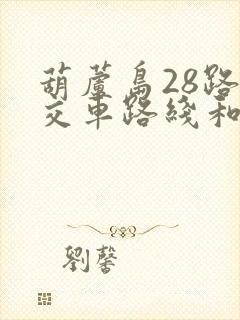 葫蘆島28路
交車路綫和
劉馨